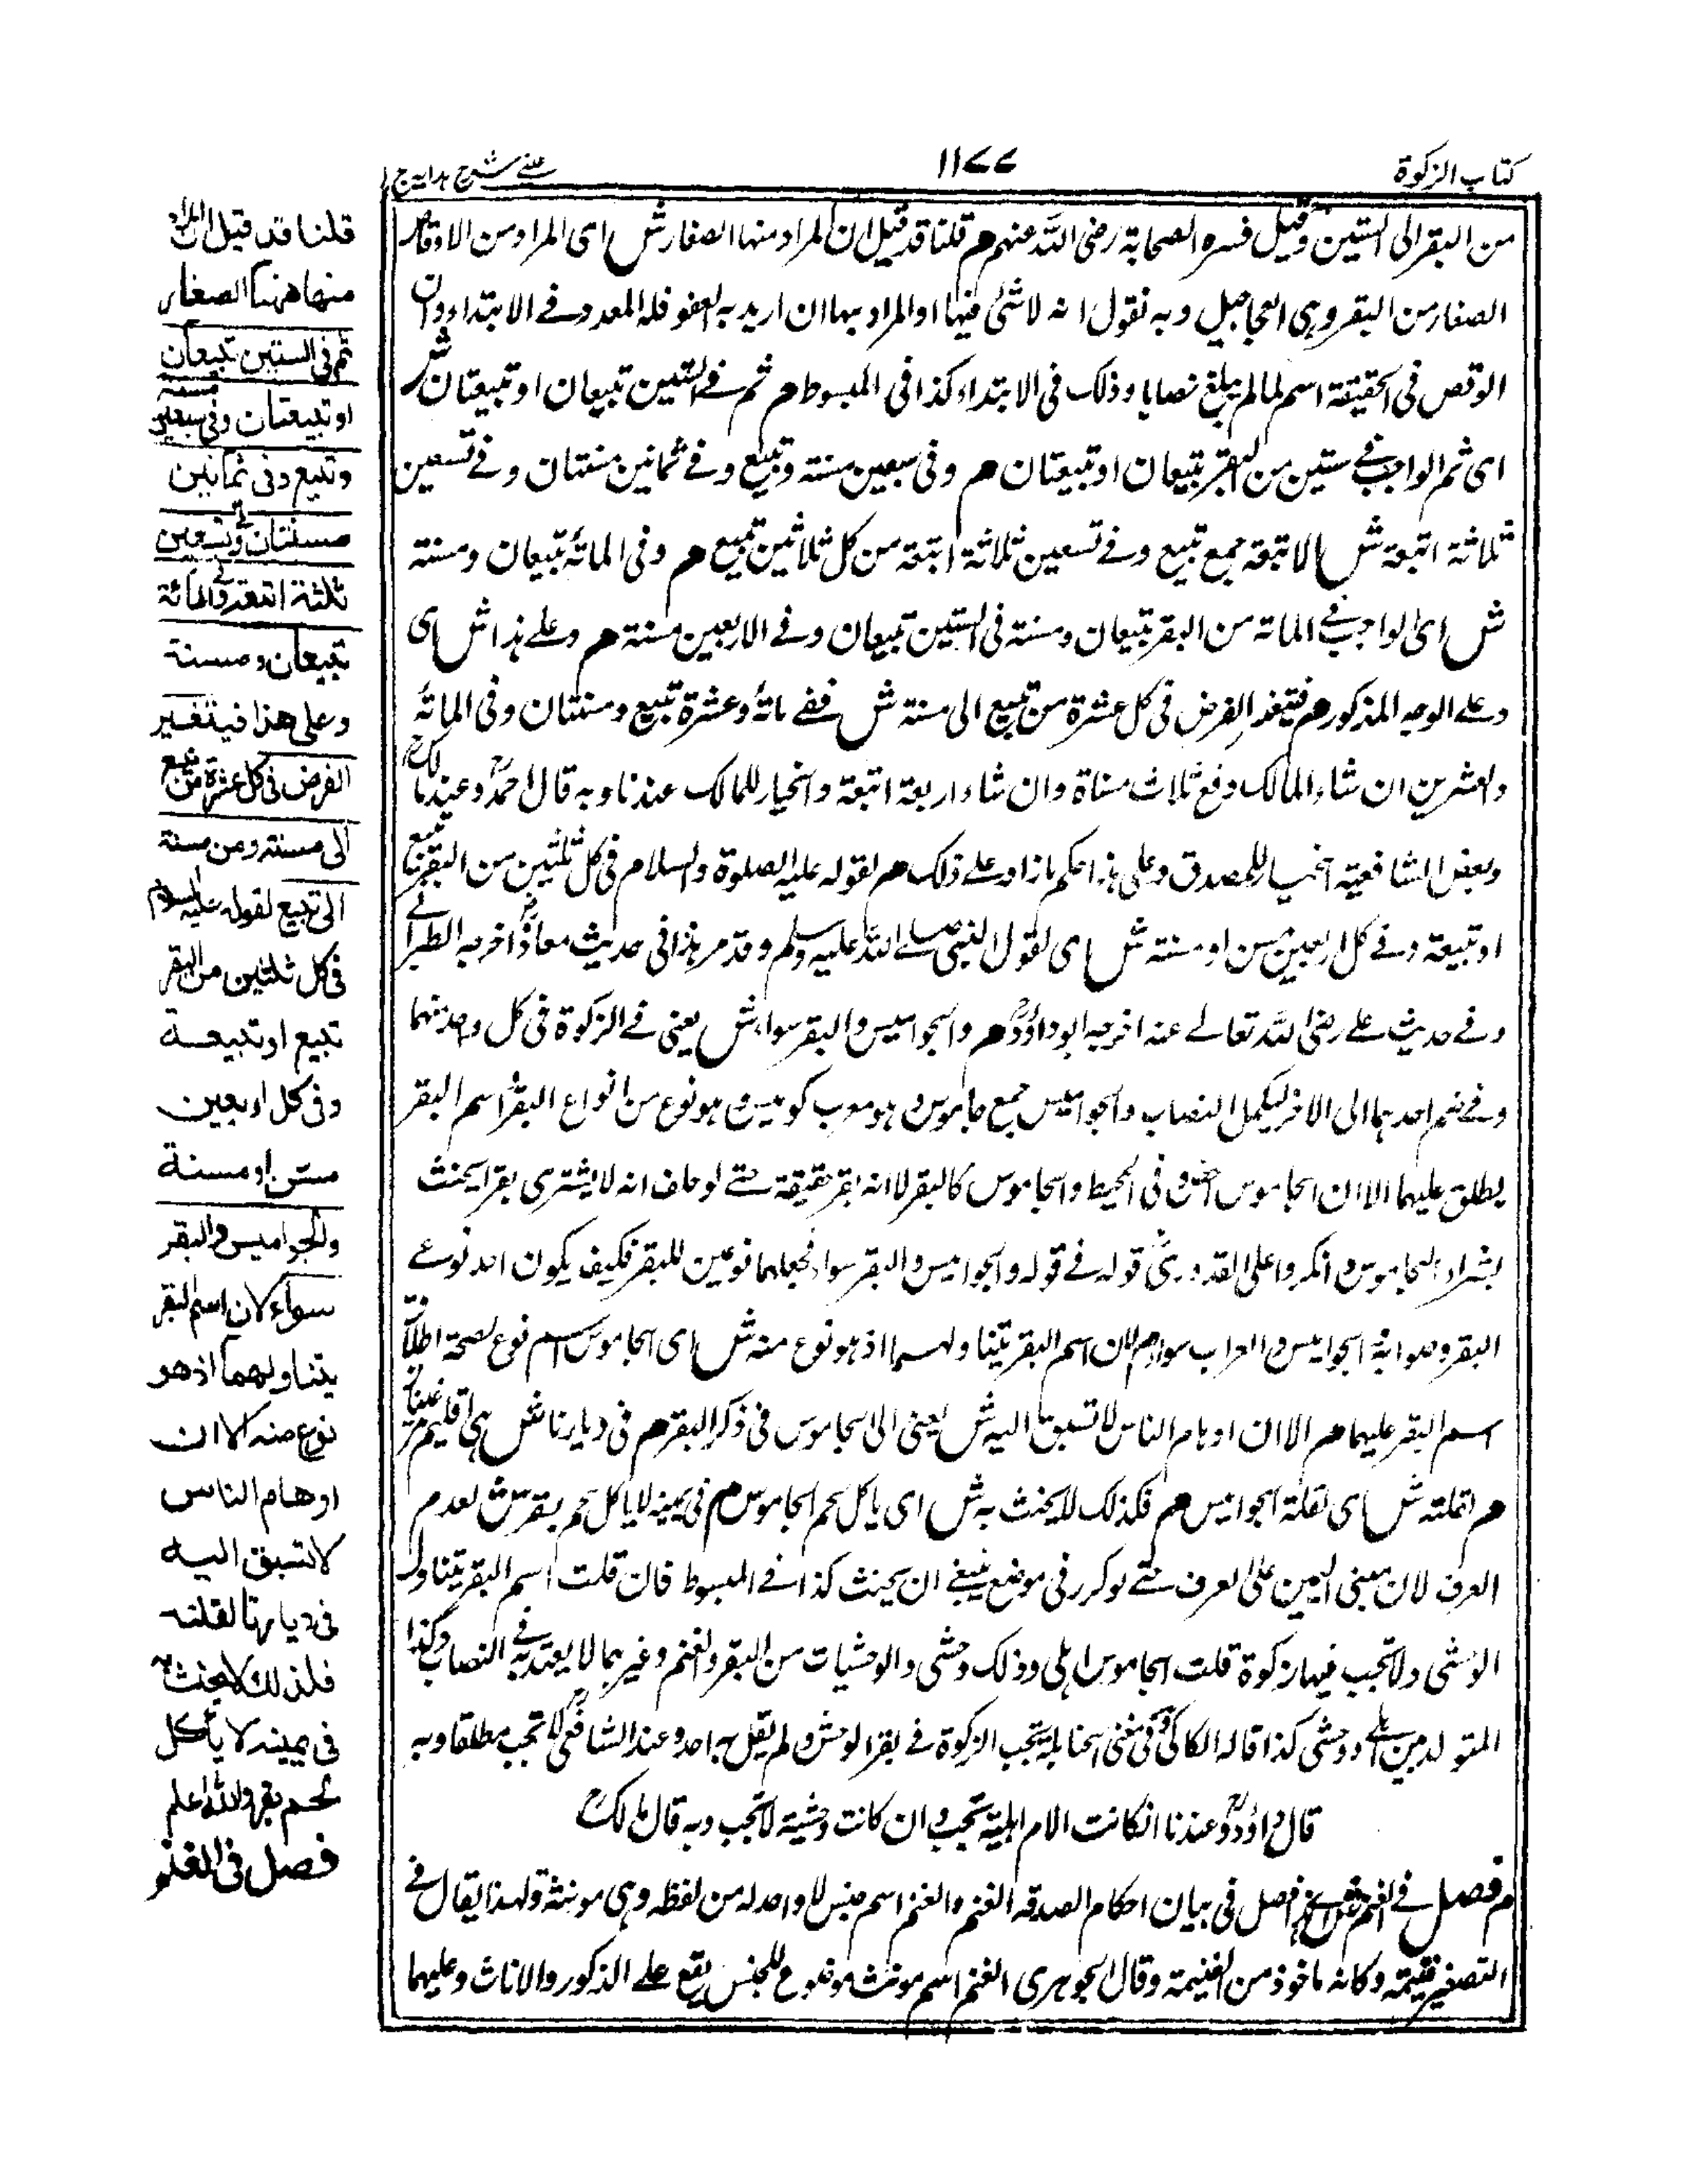 كتاب الزكوة
١١٧٧
عینی شرح ہدایہ ج ١
من البقر الی الستین وقیل فسره الصحابة رضی اللہ عنہم م قلنا قد قیل ان المراد منہا الصغار ش ای المراد من الاوقاص
الصغار من البقر وہی العجاجیل وبه نقول انه لا شئ فیہا او المراد بہا ان ارید به العفو فله المعدود فے الابتداء وان
الوقص فی الحقیقة اسم لما لم یبلغ نصابا وذلک فی الابتداء کذا فی المبسوط م ثم فے الستین تبیعان او تبیعتان ش
ای ثم الواجب فے ستین من البقر تبیعان او تبیعتان م وفی سبعین مسنة وتبیع وفے ثمانین مسنتان وفے تسعین
ثلاثة اتبعة ش الاتبعة جمع تبیع وفے تسعین ثلاثة اتبعة من کل ثلاثین تبیع م وفی المائة تبیعان ومسنة
ش ای الواجب فے المائة من البقر تبیعان ومسنة فی الستین تبیعان وفے الاربعین مسنة م وعلے ہذا ش ای
وعلے الوجه المذکور م فیتغیر الفرض فی کل عشرة من تبیع الی مسنة ش ففے مائة وعشرة تبیع ومسنتان وفی المائة
والعشرین ان شاء المالک دفع ثلاث مسناة وان شاء اربعة اتبعة والخیار للمالک عندنا وبه قال احمد وعند مالک
وبعض الشافعیة الخیار للمصدق وعلی ہذا الحکم ما زاد علے ذلک م لقوله علیه الصلوة والسلام فی کل ثلثین من البقر تبیع
او تبیعة وفے کل اربعین مسن او مسنة ش ای لقول النبی صلے اللہ علیه وسلم وقد مر ہذا فی حدیث معاذ اخرجه الطبرانے
وفے حدیث علے رضی اللہ تعالے عنه اخرجه ابو داؤد م والجوامیس والبقر سواء ش یعنی فے الزکوة فی کل واحد منہما
وفے ضم احدہما الی الاخر لیکمل النصاب والجوامیس جمع جاموس وہو معرب کومیس وہو نوع من انواع البقر اسم البقر
یطلق علیہما الا ان الجاموس اخص وفی المحیط والجاموس کالبقر لا انه بقر حقیقة حتے لو حلف انه لا یشتری بقرا یحنث
بشراء الجاموس وانکروا علی القدوری قوله فے قوله والجوامیس والبقر سواء فجعلہما نوعین للبقر فکیف یکون احد نوعے
البقر وصوابه الجوامیس والعراب سواء م لان اسم البقر یتناولہما اذ ہو نوع منه ش ای الجاموس اسم نوع لصحة اطلاق
اسم البقر علیہما م الا ان اوہام الناس لا تسبق الیه ش یعنی الی الجاموس فی ذکر البقر م فی دیارنا ش ہی اقلیم مرغینان
م لقلته ش ای لقلة الجوامیس م فلذلک لا یحنث به ش ای باکل لحم الجاموس م فی یمینه لا یاکل لحم بقر ش لعدم
العرف لان مبنی الیمین علی العرف حتے لو کثر فی موضع ینبغے ان یحنث کذا فے المبسوط فان قلت اسم البقر یتناول
الوحشی ولا تجب فیہا زکوة قلت الجاموس اہلی وذلک وحشی والوحشیات من البقر والغنم وغیرہما لا یعتد به فے النصاب وکذا
المتولد من اہلے ووحشی کذا قاله الکاکی وفی مغنی الحنابلة یجب الزکوة فے بقر الوحش ولم یقل به احد وعند الشافعی لا تجب مطلقا وبه
قال داؤد وعندنا ان کانت الام اہلیة تجب وان کانت وحشیة لا تجب وبه قال مالک
م فصل فے الغنم ش ای ہذا فصل فی بیان احکام الصدقه الغنم والغنم اسم جنس لا واحد له من لفظه وہی مونثة ولہذا یقال فے
التصغیر غنیمة وکانه ماخوذ من الغنیمة وقال الجوہری الغنم اسم مونث موضوع للجنس یقع علے الذکور والاناث وعلیہما
قلنا قد قيل ان المراد
منها ههنا الصغار
ثم فى الستين تبيعان
او تبيعتان وفى سبعين مسنة
وتبيع وفى ثمانين
مسنتان وفى تسعين
ثلثة اتبعة وفى المائة
تبيعان ومسنة
وعلى هذا فيتغير
الفرض فى كل عشرة من تبيع
الى مسنة ومن مسنة
الى تبيع لقوله عليه السلام
فى كل ثلثين من البقر
تبيع او تبيعة
وفى كل اربعين
مسن او مسنة
والجواميس والبقر
سواء لان اسم البقر
يتناولهما اذ هو
نوع منه الا ان
اوهام الناس
لا تسبق اليه
فى ديارنا لقلته
فلذلك لا يحنث به
فى يمينه لا يأكل
لحم بقر والله اعلم
فصل فى الغنم